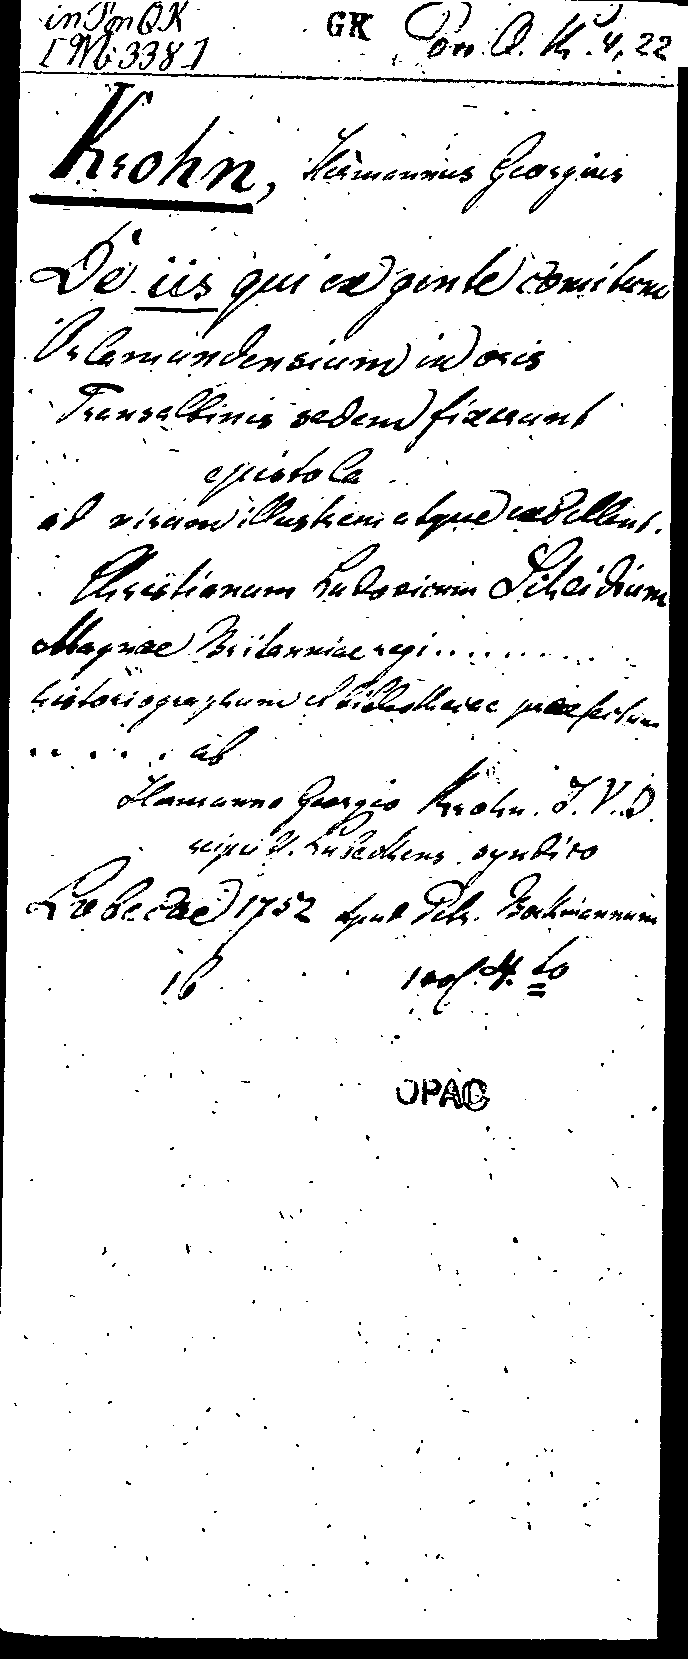 in Pon QK
[Mi 338]
GK
Pon. Q. K. 4, 22
Krohn, Hermannus Georgius
De iis qui ex gente comitum
Orlamundensium in oris
Transalbinis sedem fixerunt
epistola
ad virum illustrem atque excellent.
Christianum Ludovicum Scheidium
Magnae Britanniae regi . . . . . . . . . .
historiographum et bibliothecae praefectum
. . . . . . ab
Hermanno Georgio Krohn. J. V. D.
reip. Lubecens. syndico
Lubecae 1752 apud Petr. Boeckmannum
16
4. to
OPAC